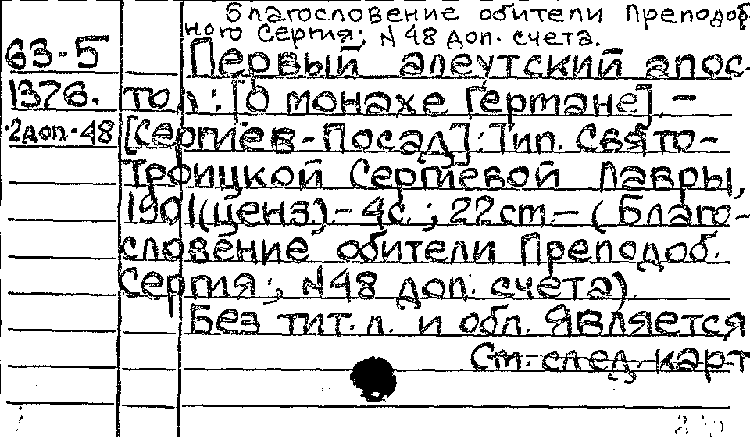 Благословение обители Преподоб
ного Сергия; N 48 доп. счета.
63-5 Первый алеутский апос-
1376. тол: [О монахе Германе]. –
2доп-48 [Сергиев-Посад]: Тип. Свято-
Троицкой Сергиевой Лавры,
1901(ценз.) – 4с.; 22cm – (Благо-
словение обители Преподоб.
Сергия; N48 доп. счета).
Без тит. л. и обл. Является
См. след. карт